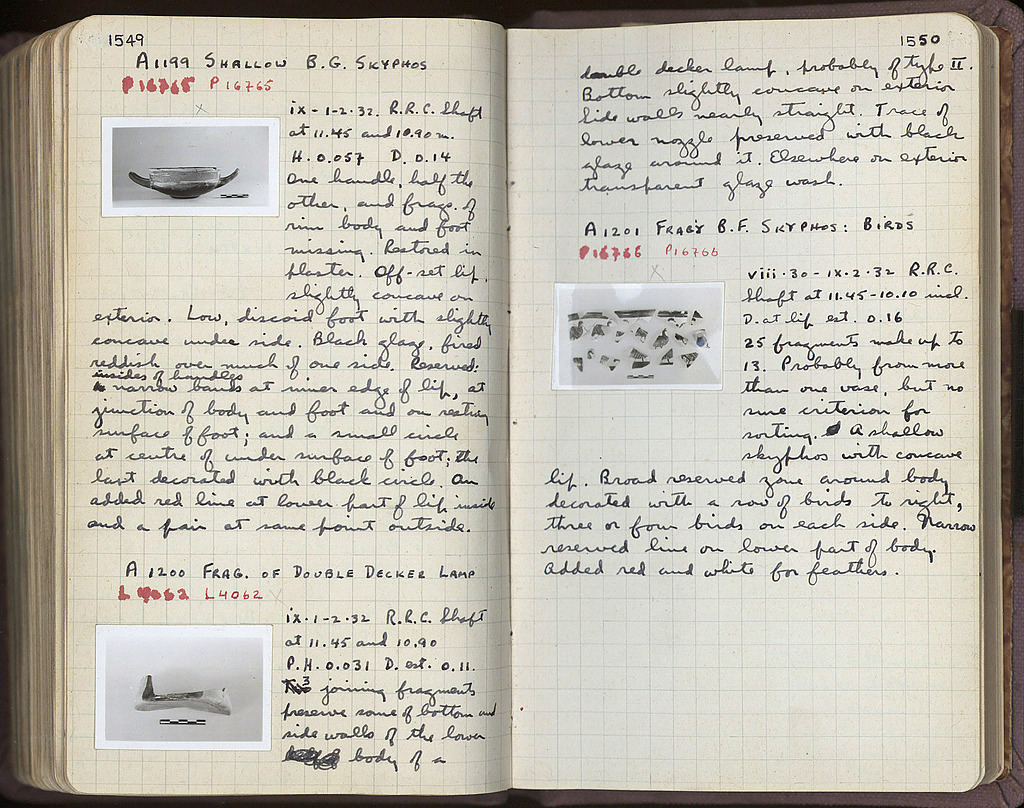 1549
A 1199 SHALLOW B.G. SKYPHOS
P 16765 P 16765
ix-1-2-32. R.R.C. Shaft
at 11.45 and 10.90 m.
H. 0.057 D. 0.14
One handle, half the
other, and frags. of
rim body and foot
missing. Restored in
plaster. Off-set lip,
slightly concave on
exterior. Low, discoid foot with slightly
concave under side. Black glaze, fired
reddish over much of one side. Reserved:
insides of handles
narrow bands at inner edge of lip, at
junction of body and foot and on resting
surface of foot; and a small circle
at centre of under surface of foot; the
last decorated with black circle. An
added red line at lower part of lip inside
and a pair at same point outside.
A 1200 FRAG. OF DOUBLE DECKER LAMP
L 4062 L 4062
ix-1-2-32 R.R.C. Shaft
at 11.45 and 10.90
P.H. 0.031 D. est. 0.11.
3 joining fragments
preserve some of bottom and
side walls of the lower
body of a
1550
double decker lamp, probably of type II.
Bottom slightly concave on exterior
Side walls nearly straight. Trace of
lower nozzle preserved with black
glaze around it. Elsewhere on exterior
transparent glaze wash.
A 1201 FRAG'Y B.F. SKYPHOS: BIRDS
P 16766 P 16766
viii-30-ix-2-32 R.R.C.
Shaft at 11.45-10.10 incl.
D. at lip est. 0.16
25 fragments make up to
13. Probably from more
than one vase, but no
sure criterion for
sorting. A shallow
skyphos with concave
lip. Broad reserved zone around body
decorated with a row of birds to right,
three or four birds on each side. Narrow
reserved line on lower part of body.
Added red and white for feathers.